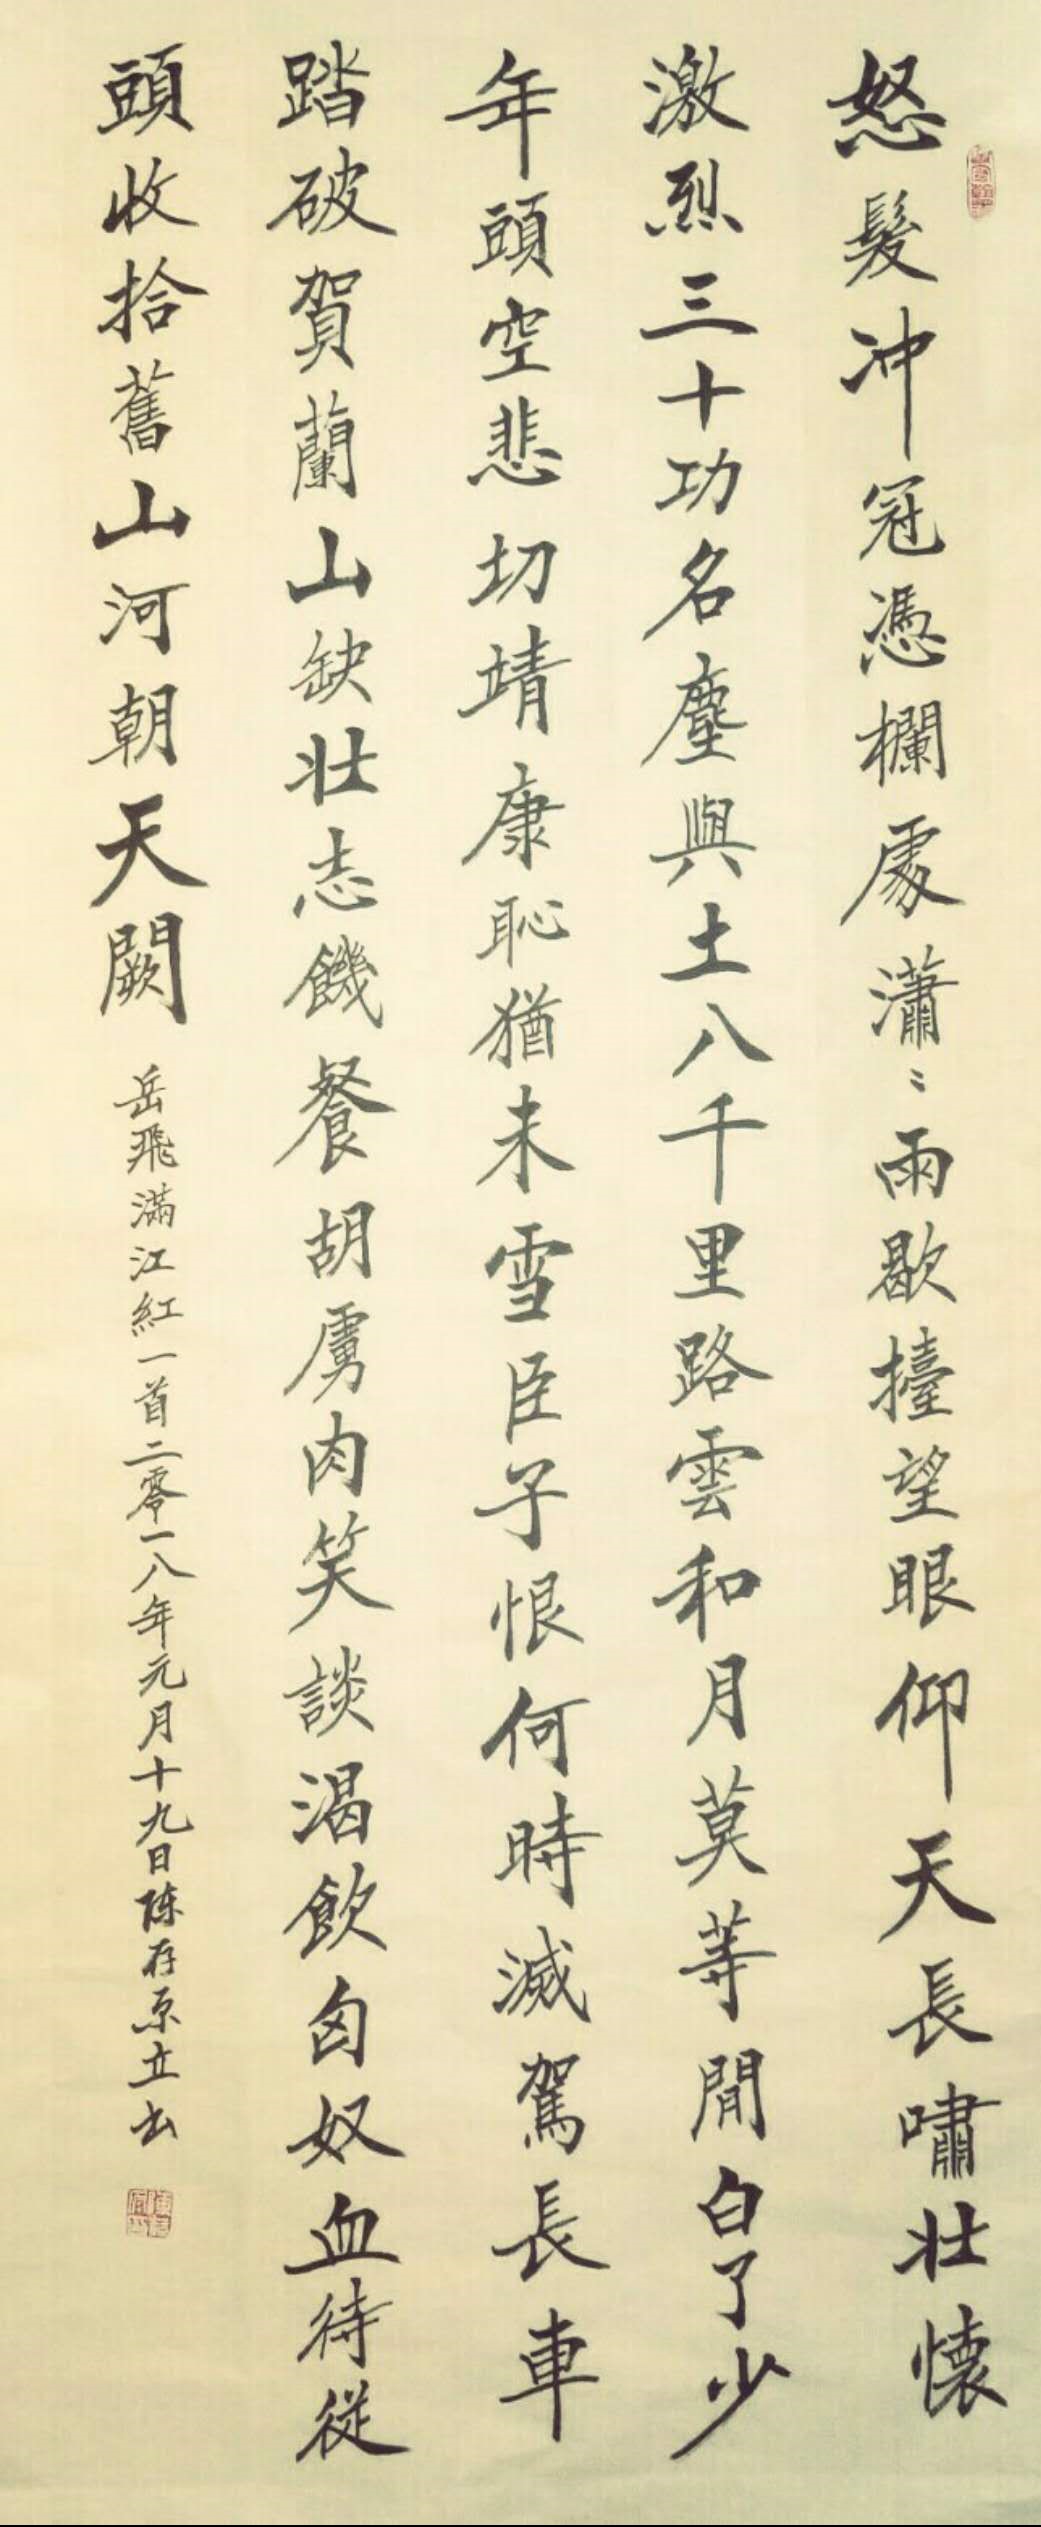 怒髮冲冠憑欄處瀟〻雨歇擡望眼仰天長嘯壯懷
激烈三十功名塵與土八千里路雲和月莫等閒白了少
年頭空悲切靖康恥猶未雪臣子恨何時滅駕長車
踏破賀蘭山缺壯志饑餐胡虜肉笑談渴飲匈奴血待從
頭收拾舊山河朝天闕
岳飛滿江紅一首二零一八年元月十九日陈存原立书